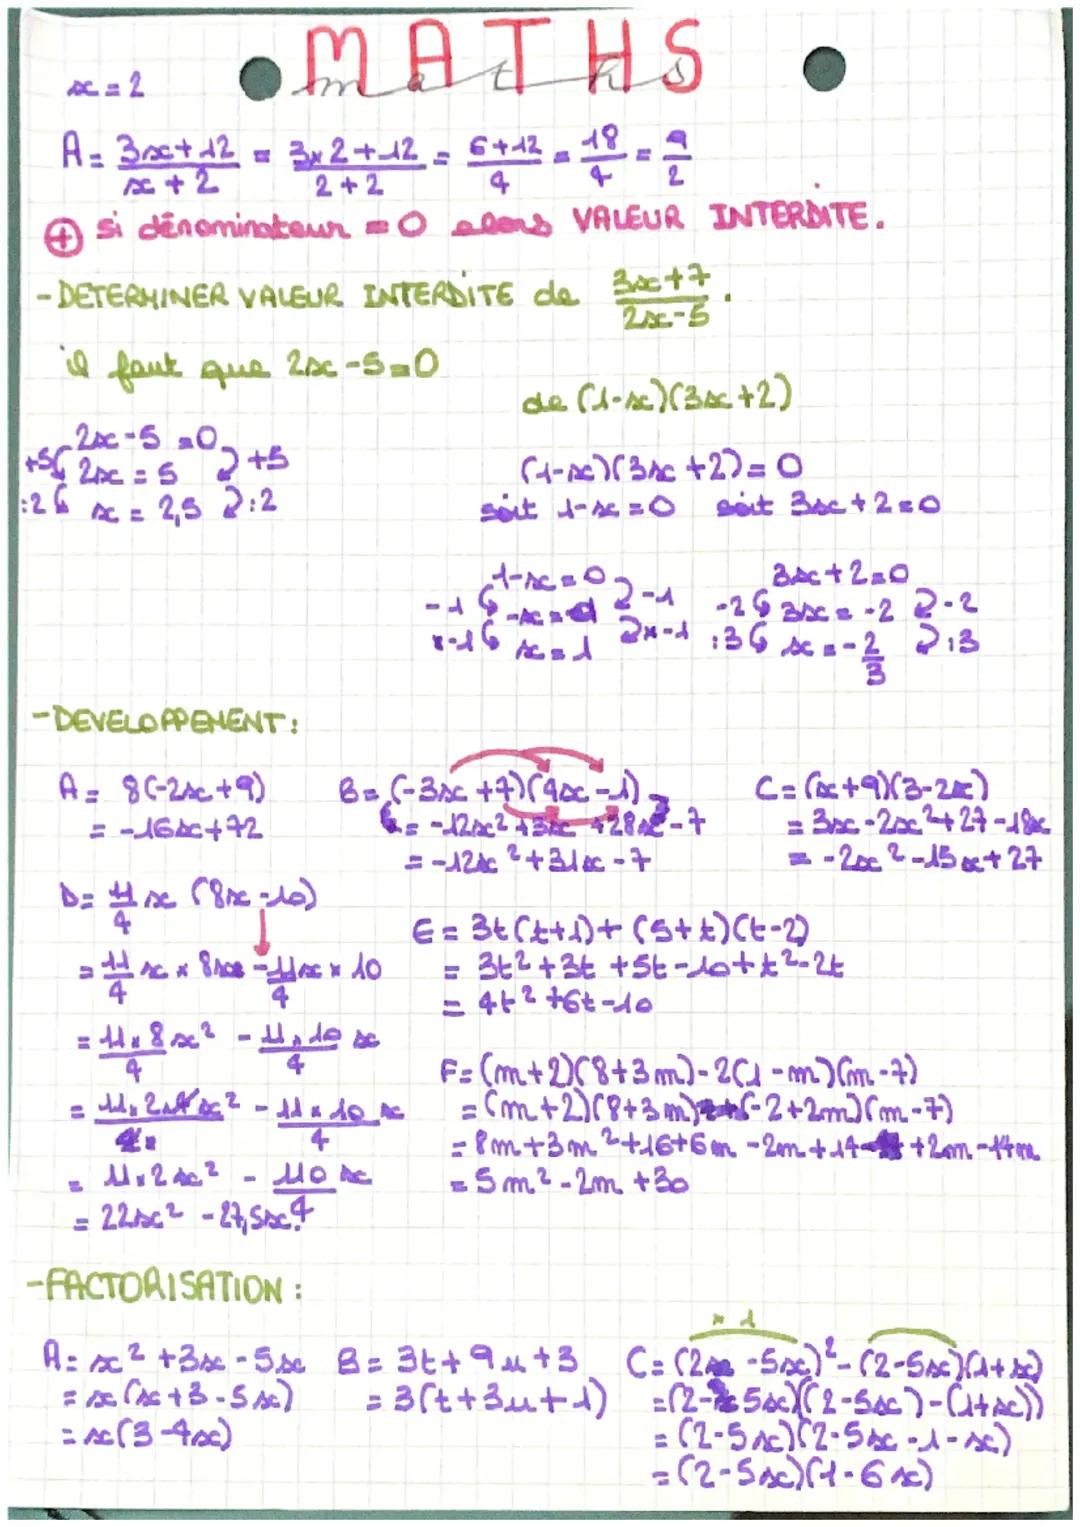 MATHS
maths
x = 2
A = (3x+12)/(x+2) = (3×2+12)/(2+2) = (6+12)/4 = 18/4 = 9/2
⊕ si dénominateur = 0 alors VALEUR INTERDITE.
- DETERMINER VALEUR INTERDITE de (3x+7)/(2x-5).
il faut que 2x-5=0
2x-5 =0
+5 2x = 5 +5
:2 x = 2,5 :2
de (1-x)(3x+2)
(1-x)(3x+2)=0
soit 1-x=0 soit 3x+2=0
1-x=0
-1 -x=-1 -1
×-1 x=1 ×-1
3x+2=0
-2 3x = -2 -2
:3 x = -2/3 :3
- DEVELOPPEMENT:
A = 8(-2x+9)
= -16x+72
B = (-3x+7)(4x-1)
= -12x²+3x+28x-7
= -12x²+31x-7
C = (x+9)(3-2x)
= 3x-2x²+27-18x
= -2x²-15x+27
D = 11/4 x (8x-10)
= 11/4 x × 8x - 11/4 x × 10
= (11×8)/4 x² - (11×10)/4 x
= 11×2×4 x² - (11×10)/4 x
= 11×2x² - 110/4 x
= 22x² - 27,5x.
E = 3t(t+1)+(5+t)(t-2)
= 3t²+3t+5t-10+t²-2t
= 4t²+6t-10
F = (m+2)(8+3m)-2(1-m)(m-7)
= (m+2)(8+3m)+(-2+2m)(m-7)
= 8m+3m²+16+6m-2m+14+2m-14m
= 5m²-2m+30
- FACTORISATION :
A = x²+3x-5x
= x(x+3-5x)
= x(3-4x)
B = 3t+9u+3
= 3(t+3u+1)
× 1
C = (2-5x)²-(2-5x)(1+x)
= (2-5x)((2-5x)-(1+x))
= (2-5x)(2-5x-1-x)
= (2-5x)(1-6x)